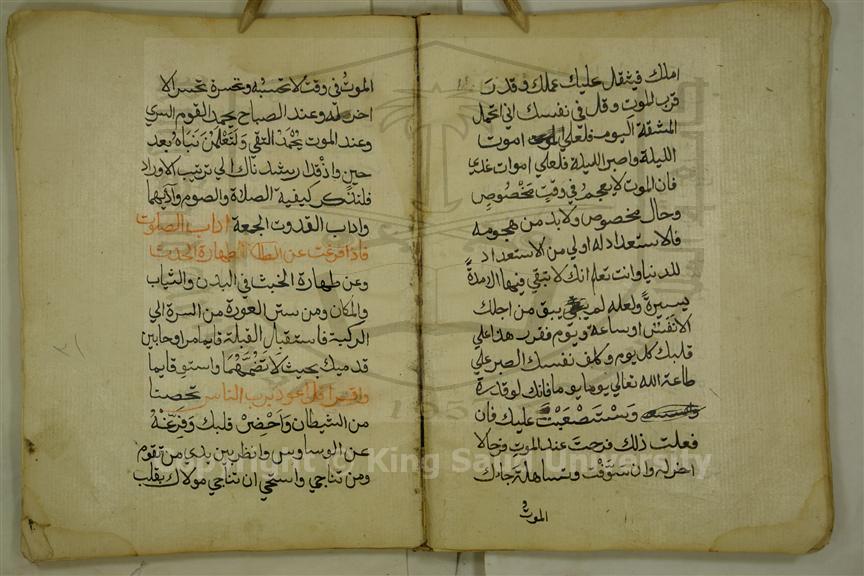 املك فيثقل عليك عملك وقدر
قرب الموت وقل في نفسك اني اتحمل
المشقة اليوم فلعلي اموت
الليلة واصبر الليلة فلعلي اموت غدا
فان الموت لا يهجم في وقت مخصوص
وحال مخصوص ولابد من هجومه
فالاستعداد له اولي من الاستعداد
للدنيا وانت تعلم انك لا تبقي فيها الا مدةً
يسيرةً ولعله لم يبق من اجلك
الا نفسٌ او ساعه ويوم فقرب هذا علي
قلبك كل يوم وكلف نفسك الصبر علي
طاعة الله تعالي يوما يوما فانك لو قدرة
وتستصعبت عليك فان
فعلت ذلك فرحت عند الموت فرحا لا
اخر له وان سَوَّفْتَ وتساهلة جاءك
الموتُ
الموتُ في وقت لا تحسبُه وتحسرة تحسرا لا
اخر له وعند الصباح يحمد القوم السري
وعند الموت يُحْمَدُ التقي وَلَتَعْلَمُنَّ نَبَأهُ بعد
حين واذ قد ارشدناك الي ترتيب الاوراد
فلنذكر كيفية الصلاة والصوم وآدابهما
واداب القدوت الجمعة اداب الصلوات
فاذا فرغت عن طهارة الحدث
وعن طهارة الخبث في البدن والثياب
والمكان ومن ستر العورة من السرة الي
الركبة فاستقبل القبلة قايما مراوحا بين
قدميك بحيث لا تضمهما واستو قايما
واقرا قل اعوذ برب الناس تحصنا
من الشيطان وَاَحْضِرْ قلبك وَفَرِّغْهُ
عن الوساوس وانظر بين يدي من تقوم
ومن تناجي واستحي ان تناجي مولاك بقلب
Copyright © King Saud University
1957